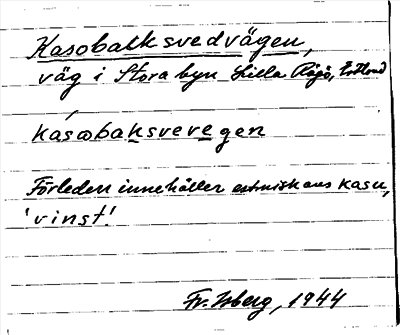 Kasobacksvedvägen,
väg i Stora byn Lilla Rågö, Estland
kasobaksvevegen
Förleden innehåller estniskans kasu,
'vinst'.
Fr. Isberg, 1944